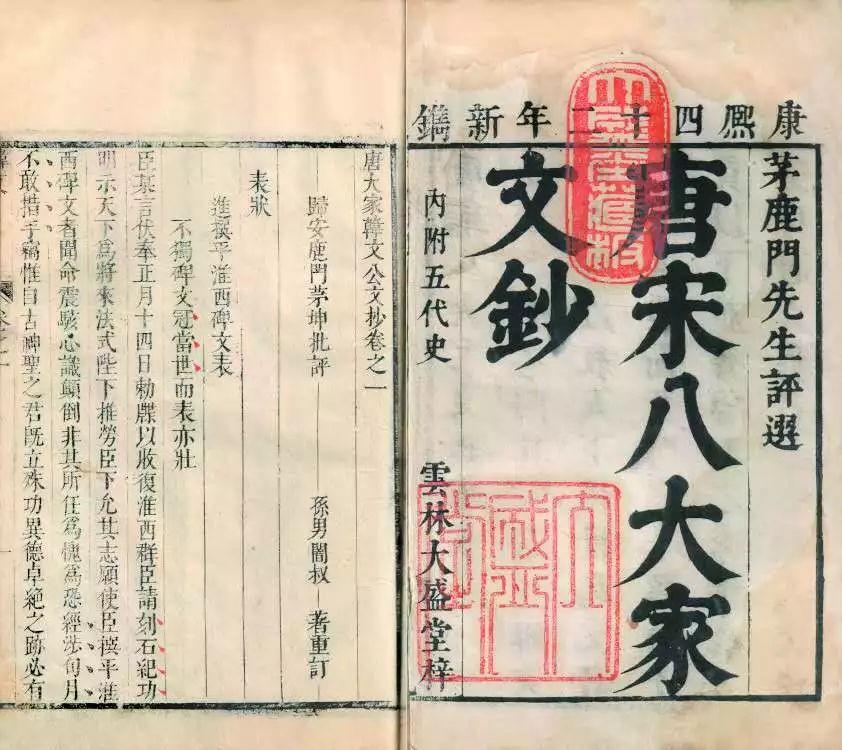 康熙四十二年新鐫
茅鹿門先生評選
唐宋八大家
文鈔
內附五代史
雲林大盛堂梓
大盛堂藏板
大盛堂
唐大家韓文公文抄卷之一
歸安鹿門茅坤批評 孫男闇叔 著重訂
表狀
進撰平淮西碑文表
不獨碑文冠當世而表亦壯
臣某言伏奉正月十四日勅牒以收復淮西群臣請刻石紀功
明示天下爲將來法式陛下推勞臣下允其志願使臣撰平淮
西碑文者聞命震駭心識顛倒非其所任爲愧爲恐經涉旬月
不敢措手竊惟自古神聖之君旣立殊功異德卓絕之跡必有